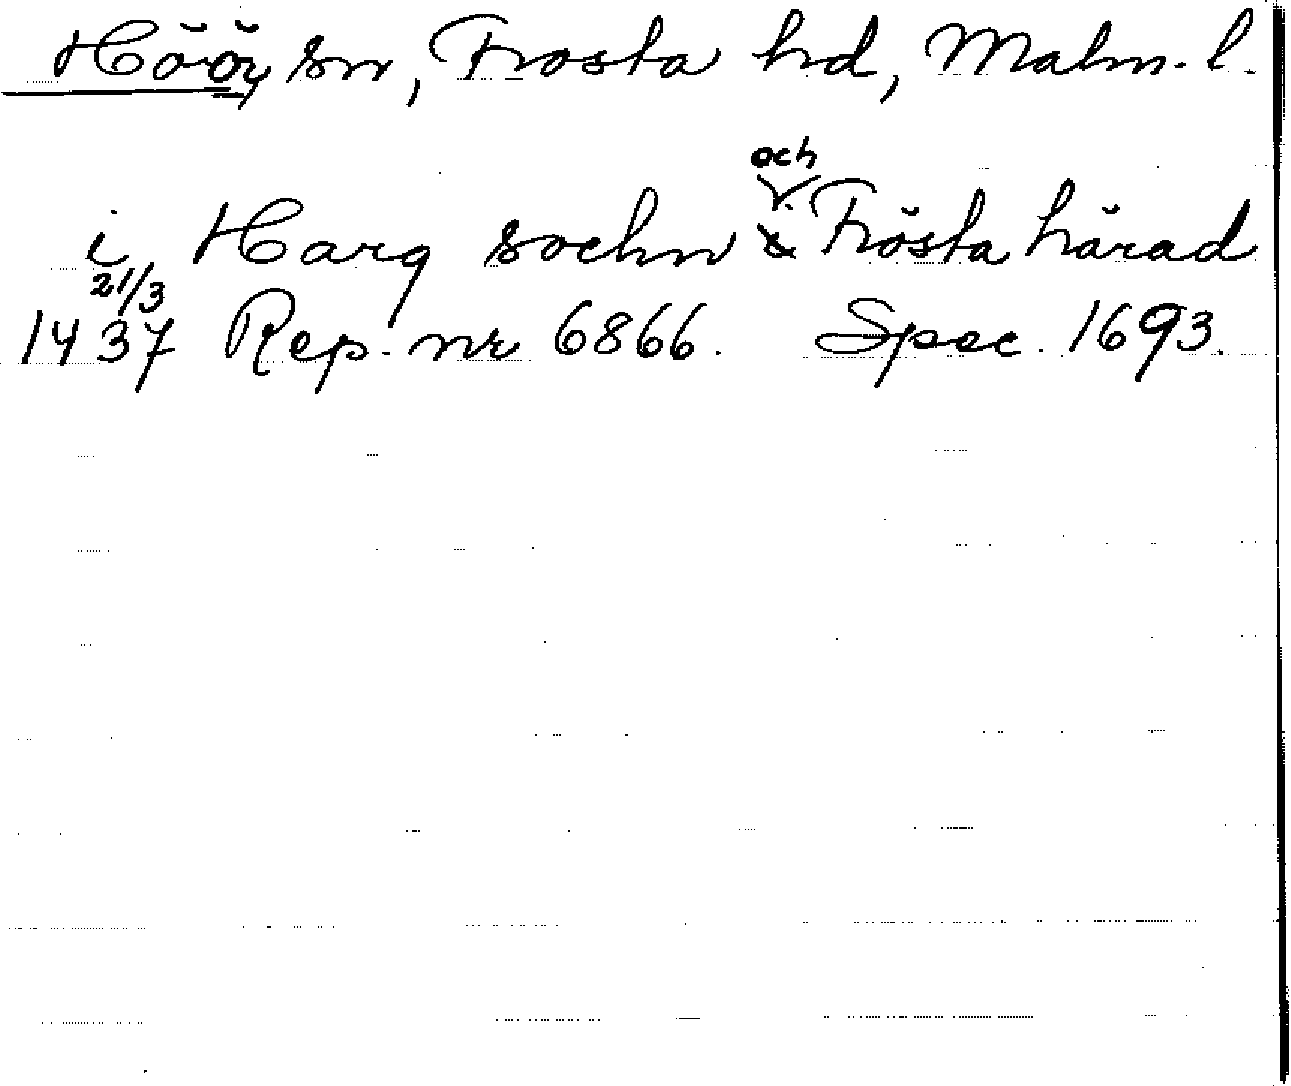 Höör sn, Frosta hd, Malm. l.
och
i Harg sochn & Frösta härad
21/3
1437 Rep. nr 6866. Spec. 1693.